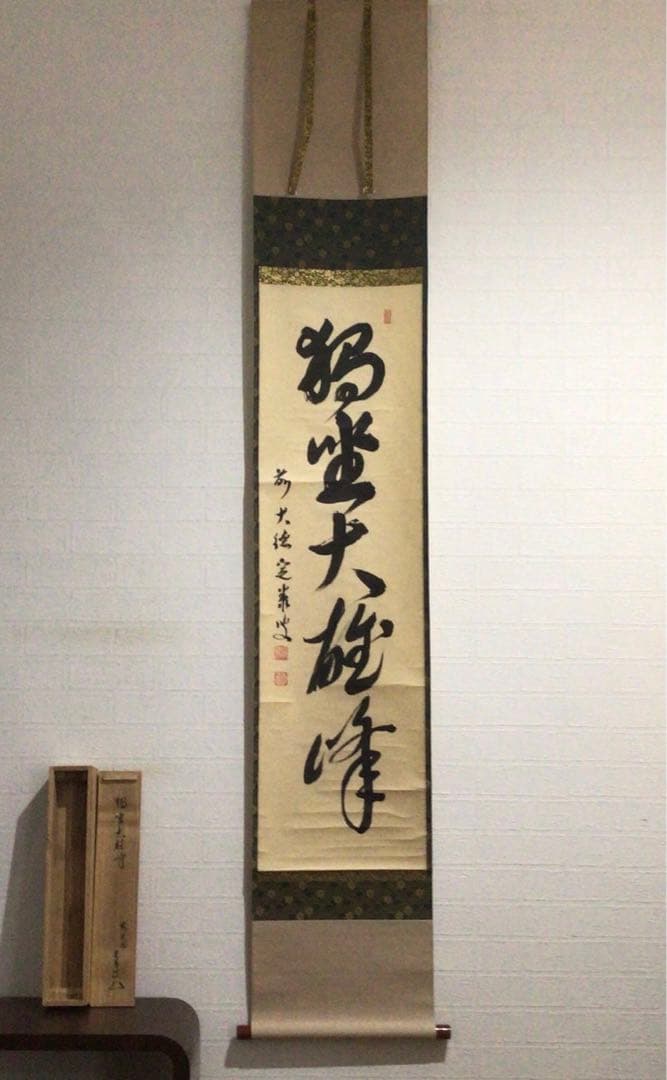 獨坐大雄峰
前大徳定叢叟
獨坐大雄峰